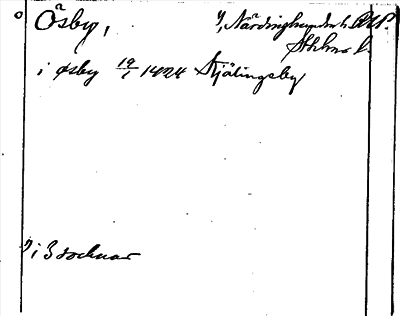 Ösby, 1), Närdinghundra h. AUP.
Sthlms l.
i øsby 19/1 1424 Stjälingsby
1) i 3 socknar